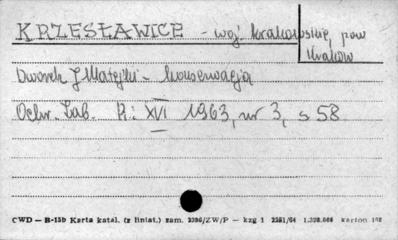 KRZESŁAWICE - woj. krakowskie, pow
Kraków
Dworek J Matejki - konserwacja
Ochr. Zab. R: XVI 1963, nr 3, s 58
CWD — B-15b Karta katal. (z liniat.) zam. 3396/ZW/P — kzg 1 2251/64 1.328.666 karton